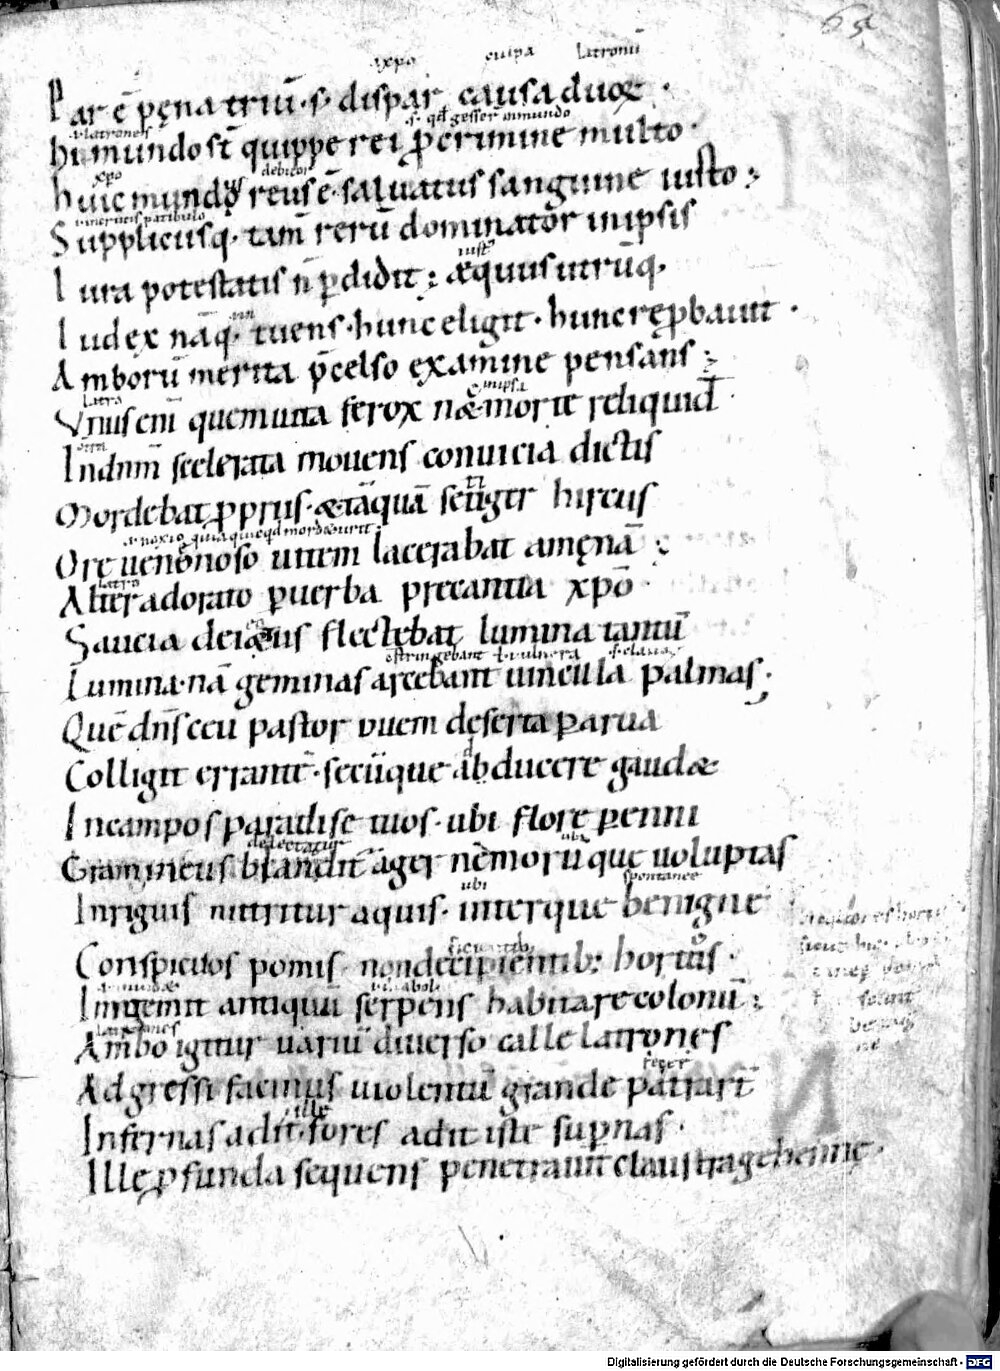 65
a xpo culpa latronū
Par ē pęna triū · s · dispar causa duoꝝ ·
latrones s · qđ gesser inmundo
hi mundo st̄ quippe rei p̄ crimine multo ·
xpo debitor
huic mundus reus ē · saluatus sanguine iusto ;
inherens patibulo
Supplicusq· tam̄ rerū dominator inipsis
iust
Iura potestatis n̄ ꝑdidit ; æquus utrūq·
Iudex nāq· tuens · hunc eligit · hunc rępbauit ·
Amborū merita p̄celso examine pensans ;
latro inipsa
Vnius eni quem uita ferox necmorte reliquid ·
In dn̄m scelerata mouens conuicia dictis
Mordebat ꝓprius · & tāquā setiger hircus
noxio quia quicqd mordæ urit
Ore uenenoso uitem lacerabat amęnā ;
latro
Alter adorato ꝑ uerba precantia xpō
Saucia deiectus flectebat lumina tantū
stringebant uulnera claua
Lumina · nā geminas arcebant uincula palmas ;
Quē dn̄s ceu pastor ouem deserta ꝑ arua
Colligit errantē · secūque abducere gaudæ
In campos paradise tuos · ubi flore ꝑenni
delectatur ubi
Gramineus blandit ager nemorū que uoluptas
ubi spontanee
Inriguis nutritur aquis · interque benigne
Conspicuos pomis non deficientib; hortos ·
diabol
Ingemit antiquū serpens habitare colonū ;
latrones
Ambo igitur uariū diuerso calle latrones
fecer
Adgressi facinus uiolentū grande patrart̄
ille
Infernas adit · fores adit iste suꝑnas ·
Ille ꝓfunda sequens penetrauit claustra gehennę ·
Digitalisierung gefördert durch die Deutsche Forschungsgemeinschaft - DFG